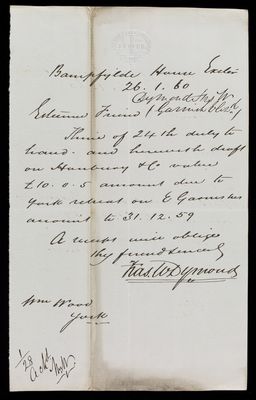 Bampfylde House Exeter
26. 1. 60
Esteemed Friend
Thine of 24th duly to
hand. and herewith draft
on Hanbury & Co value
£10. 0. 5 amount due to
York retreat on E
amount to 31. 12. 59
A receipt will oblige
thy friend sincerely
Fras. W Dymond
Wm Wood
York
1/28